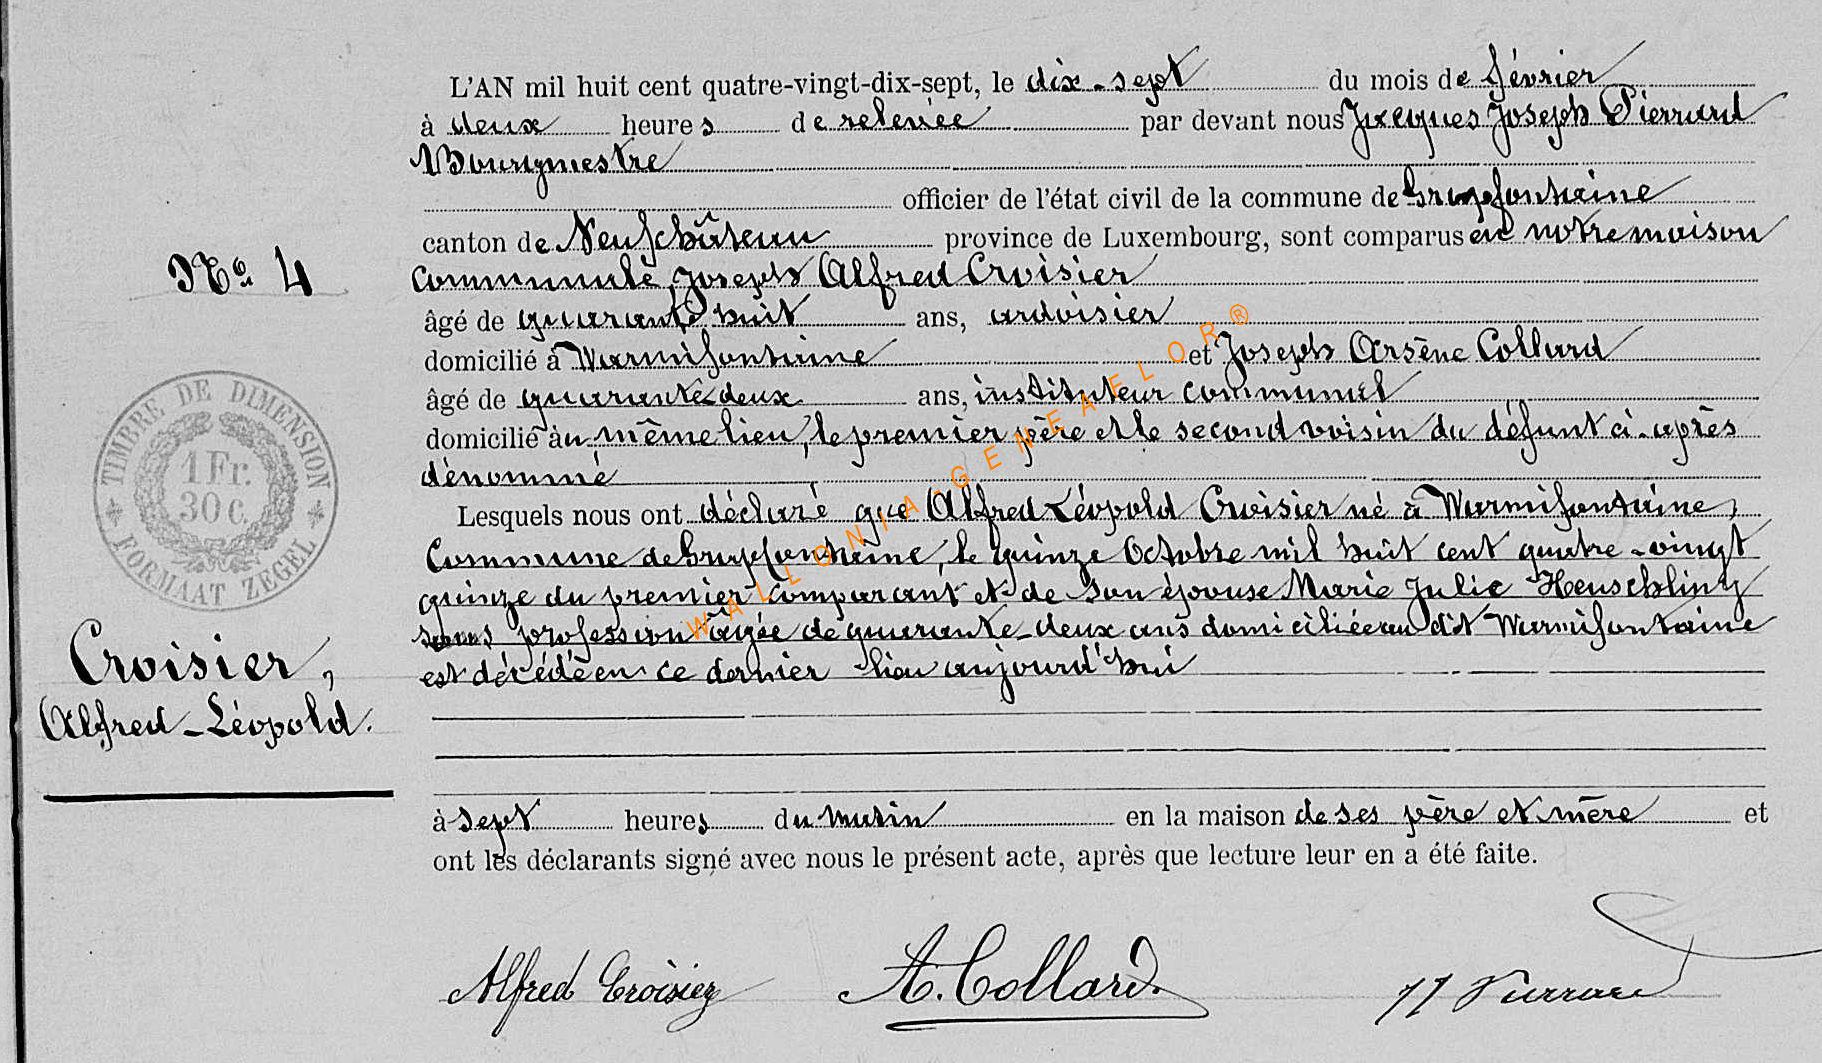 L'AN mil huit cent quatre-vingt-dix-sept, le dix-sept du mois de février
à deux heures de relevée par devant nous Jacques Joseph Pierrard
Bourgmestre
officier de l'état civil de la commune de Grapfontaine
canton de Neufchâteau province de Luxembourg, sont comparus en notre maison
Communale Joseph Alfred Croisier
âgé de quarante huit ans, ardoisier
domicilié à Warmifontaine et Joseph Arsène Collard
âgé de quarante deux ans, instituteur communal
domicilié au même lieu, le premier père et le second voisin du défunt ci-après
dénommé
Lesquels nous ont déclaré que Alfred Léopold Croisier né à Warmifontaine,
Commune de Grapfontaine, le quinze Octobre mil huit cent quatre-vingt
quinze du premier comparant et de son épouse Marie Julie Heuschling
sans profession âgée de quarante-deux ans domiciliée au dit Warmifontaine
est décédé en ce dernier lieu aujourd'hui
à sept heures du matin en la maison de ses père et mère et
ont les déclarants signé avec nous le présent acte, après que lecture leur en a été faite.
Alfred Croisier A. Collard JJ Pierrard
No 4
TIMBRE DE DIMENSION
1 Fr.
30 c.
FORMAAT ZEGEL
Croisier,
Alfred-Léopold.
WALLONIA-GENEALOR®